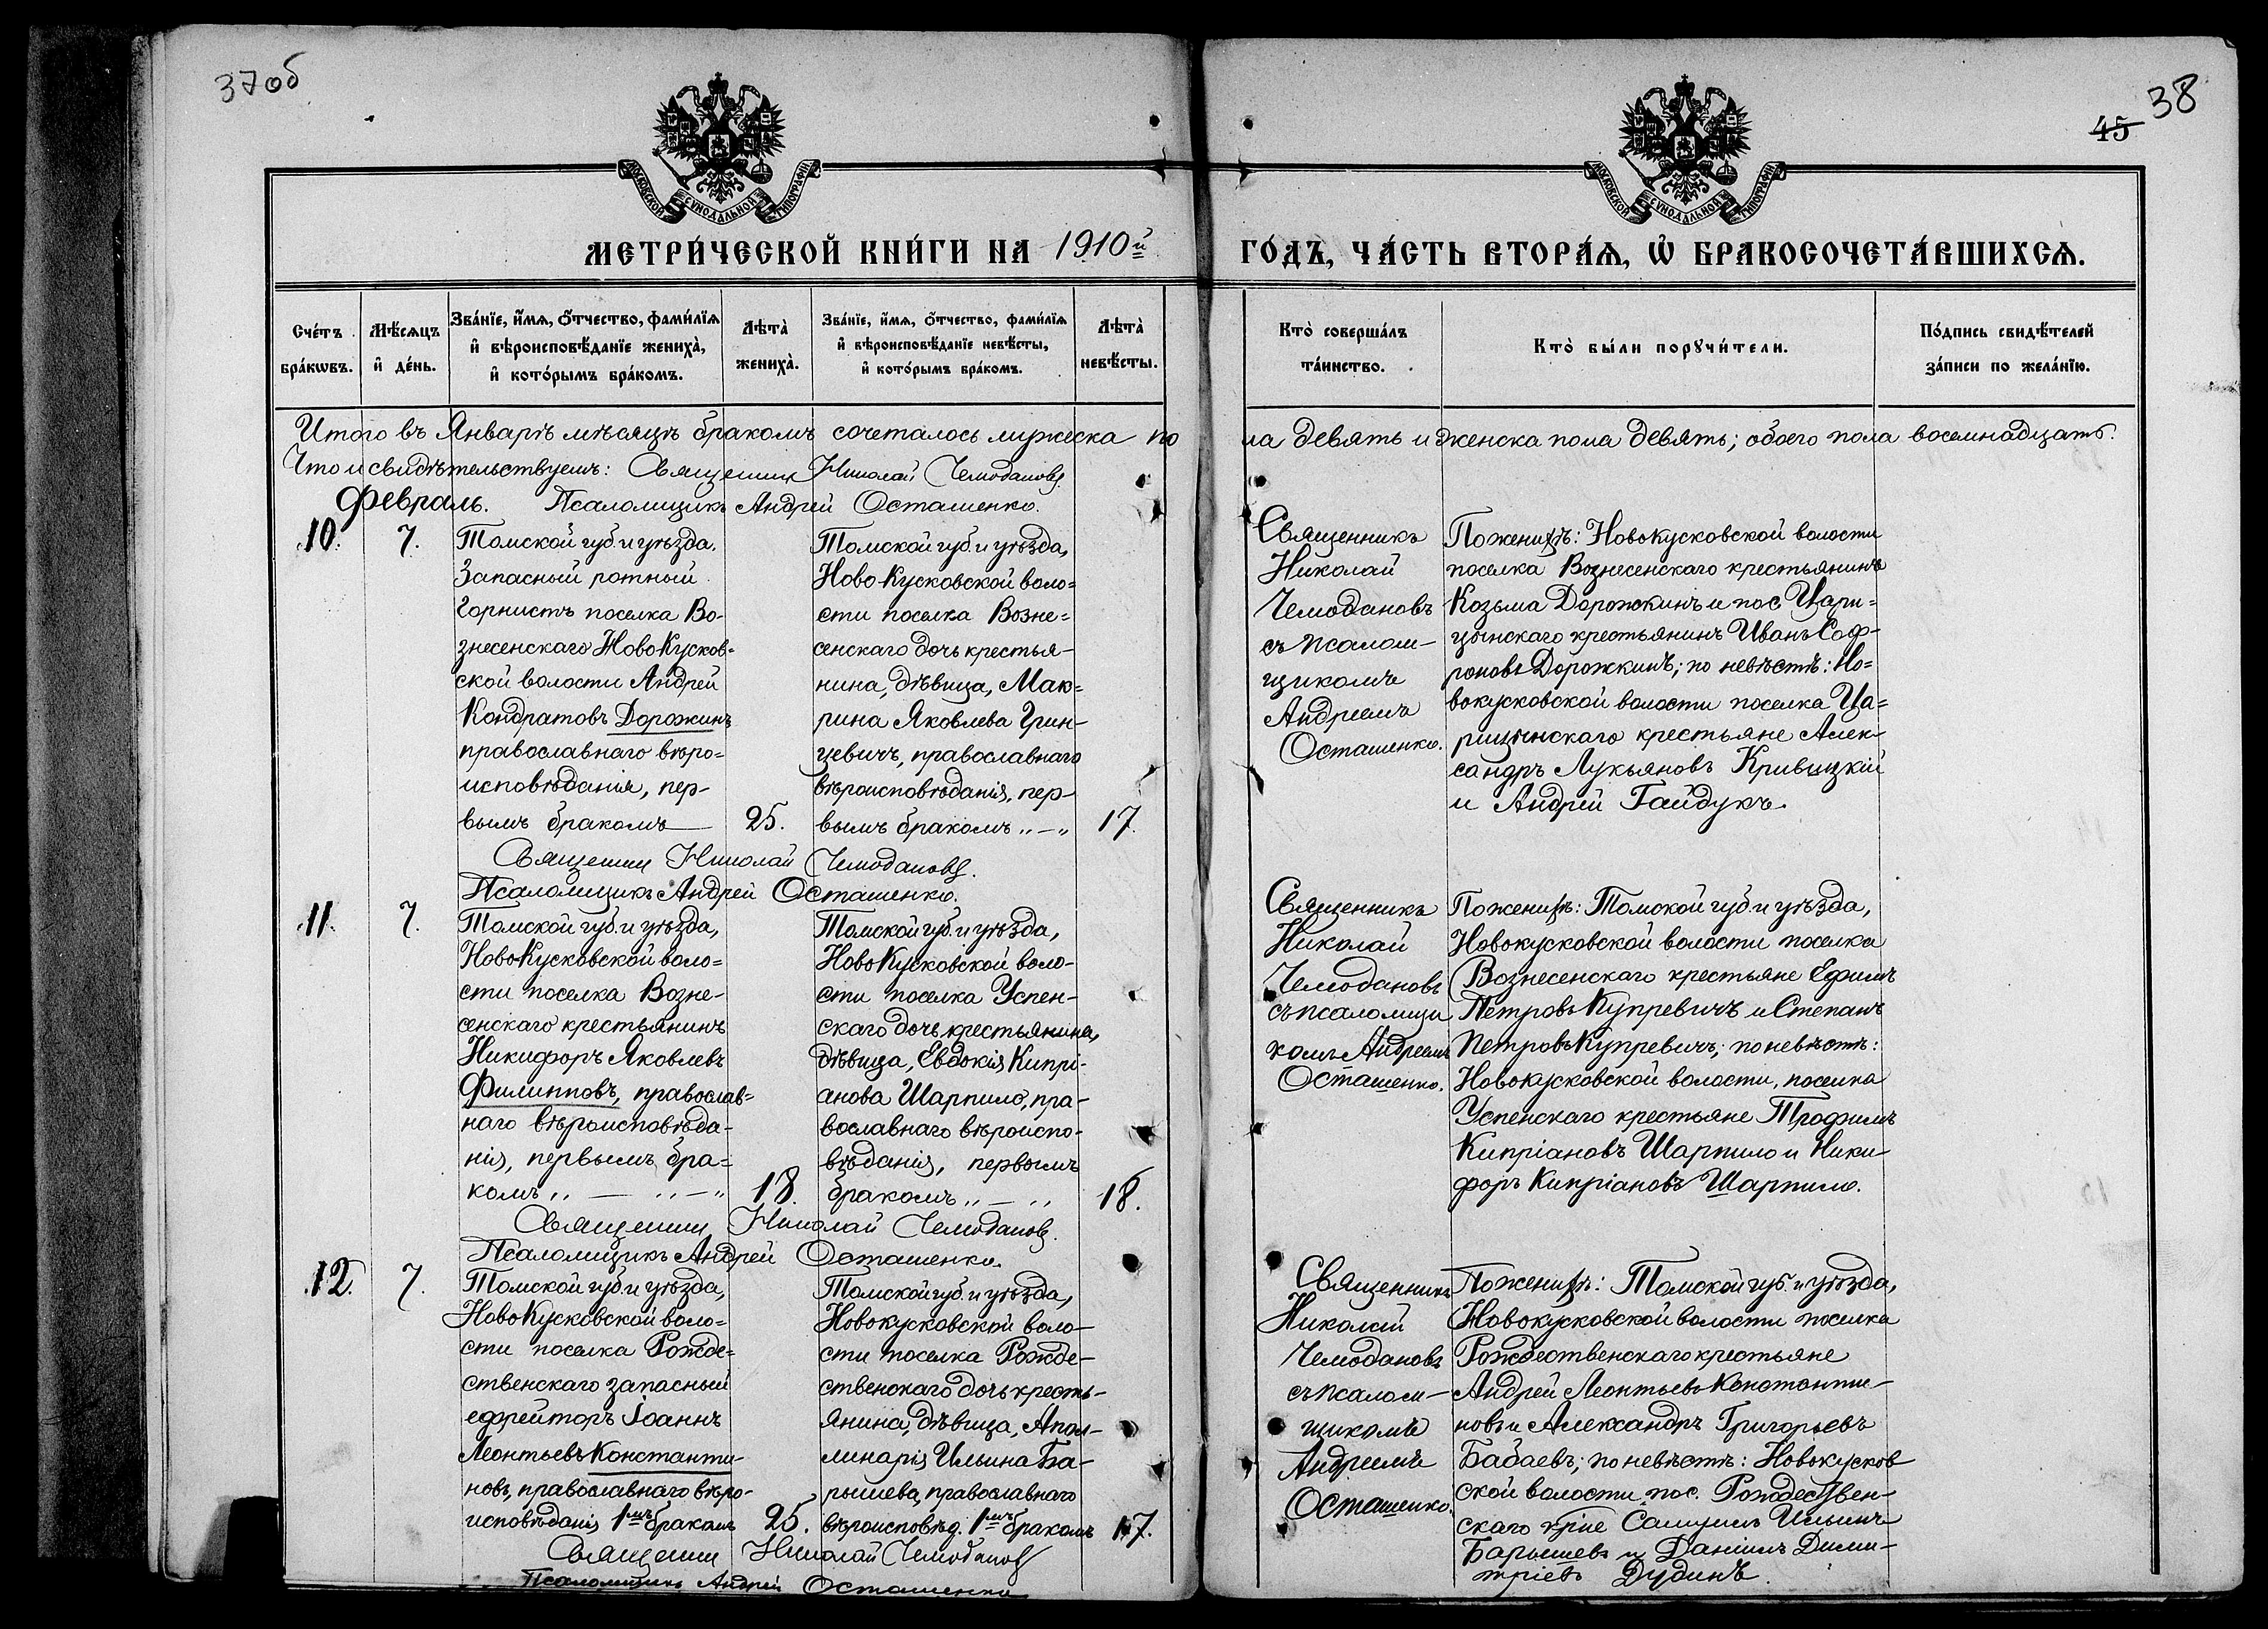 37об
38
45
МОСКОВСКОЙ СѴНОДАЛЬНОЙ ТИПОГРАФІИ
МОСКОВСКОЙ СѴНОДАЛЬНОЙ ТИПОГРАФІИ
МЕТРИ́ЧЕСКОЙ КНИ́ГИ НА 1910й ГО́ДЪ, ЧА́СТЬ ВТОРА́Ѧ, Ѽ БРАКОСОЧЕТА́ВШИХСѦ.
Сче́тъ бра́кѡвъ.
Мѣ́сѧцъ и҆ де́нь.
Зва́нїе, и҆́мѧ, ѻ҆́тчество, фами́лїѧ
и҆ вѣроисповѣ́данїе жениха̀,
и҆ кото́рымъ бра́комъ.
Лѣта̀ жениха̀.
Зва́нїе, и҆́мѧ, ѻ҆́тчество, фами́лїѧ
и҆ вѣроисповѣ́данїе невѣ́сты,
и҆ кото́рымъ бра́комъ.
Лѣта̀ невѣ́сты.
Кто̀ соверша́лъ
та́инство.
Кто̀ бы́ли порꙋчи́тели.
По́дпись свидѣ́телей
за́писи по жела́нїю.
Итого въ Январѣ мѣсяцѣ бракомъ сочеталось мужеска пола девять и женска пола девять; обоего пола восемнадцать.
Что и свидѣтельствуемъ: Священник Николай Чемодановъ
Февраль. Псаломщикъ Андрей Осташенко.
10. 7.
Томской губ. и уѣзда.
Запасный ротный
горнистъ поселка Во-
знесенскаго НовоКусков-
ской волости Андрей
Кондратовъ Дорожкинъ
православнаго вѣро-
исповѣданія, пер-
вымъ бракомъ — 25.
Томской губ. и уѣзда,
Ново-Кусковской воло=
сти поселка Возне=
сенскаго дочь крестья-
нина, дѣвица, Мак=
рина Яковлева Грин-
цевичъ, православнаго
вѣроисповѣданія, пер-
вымъ бракомъ „—„ 17.
Священникъ
Николай
Чемодановъ
съ псалом-
щикомъ
Андреемъ
Осташенко.
По женихѣ: Новокусковской волости
поселка Вознесенскаго крестьянинъ
Козьма Дорожкинъ и пос. Цари=
цынскаго крестьянинъ Иванъ Соф-
роновъ Дорожкинъ; по невѣстѣ: Но=
вокусковской волости поселка Ца=
рицынскаго крестьяне Алек-
сандръ Лукьяновъ Кривицкій
и Андрей Гайдукъ.
Священник Николай Чемодановъ.
Псаломщикъ Андрей Осташенко.
11. 7.
Томской губ. и уѣзда,
НовоКусковской воло=
сти поселка Возне-
сенскаго крестьянинъ
Никифоръ Яковлевъ
Филипповъ, православ=
наго вѣроисповѣда-
нія, первымъ бра=
комъ „ — „ — „ 18.
Томской губ. и уѣзда,
НовоКусковской воло-
сти поселка Успен-
скаго дочь крестьянина,
дѣвица, Евдокія Кипрі-
анова Шарпило, пра-
вославнаго вѣроиспо-
вѣданія, первымъ
бракомъ „ — „ 18.
Священникъ
Николай
Чемодановъ
съ псаломщи
комъ Андреемъ
Осташенко.
По женихѣ: Томской губ. и уѣзда,
Новокусковской волости поселка
Вознесенскаго крестьяне Ефимъ
Петровъ Купревичъ и Степанъ
Петровъ Купревичъ; по невѣстѣ:
Новокусковской волости, поселка
Успенскаго крестьяне Трофимъ
Кипріановъ Шарпило и Ники-
форъ Кипріановъ Шарпило.
Священник Николай Чемодановъ.
Псаломщикъ Андрей Осташенко.
12. 7.
Томской губ. и уѣзда,
НовоКусковской воло=
сти поселка Рожде=
ственскаго запасный
ефрейторъ Іоаннъ
Леонтьевъ Константи-
новъ, православнаго вѣро-
исповѣданія 1мъ бракомъ 25.
Томской губ. и уѣзда,
Новокусковской воло-
сти поселка Рожде-
ственскаго дочь кресть-
янина, дѣвица, Апол-
линарія Ильина Ба-
рышева, православнаго
вѣроисповѣд. 1мъ бракомъ 17.
Священникъ
Николай
Чемодановъ
съ псалом-
щикомъ
Андреемъ
Осташенко.
По женихѣ: Томской губ. и уѣзда,
Новокусковской волости поселка
Рождественскаго крестьяне
Андрей Леонтьевъ Константи-
новъ и Александръ Григорьевъ
Бабаевъ; по невѣстѣ: Новокусков
ской волости пос. Рождествен-
скаго кр̃не Самуилъ Ильинъ
Барышевъ и Даніилъ Дими-
тріевъ Дудинъ.
Священник Николай Чемодановъ
Псаломщикъ Андрей Осташенко